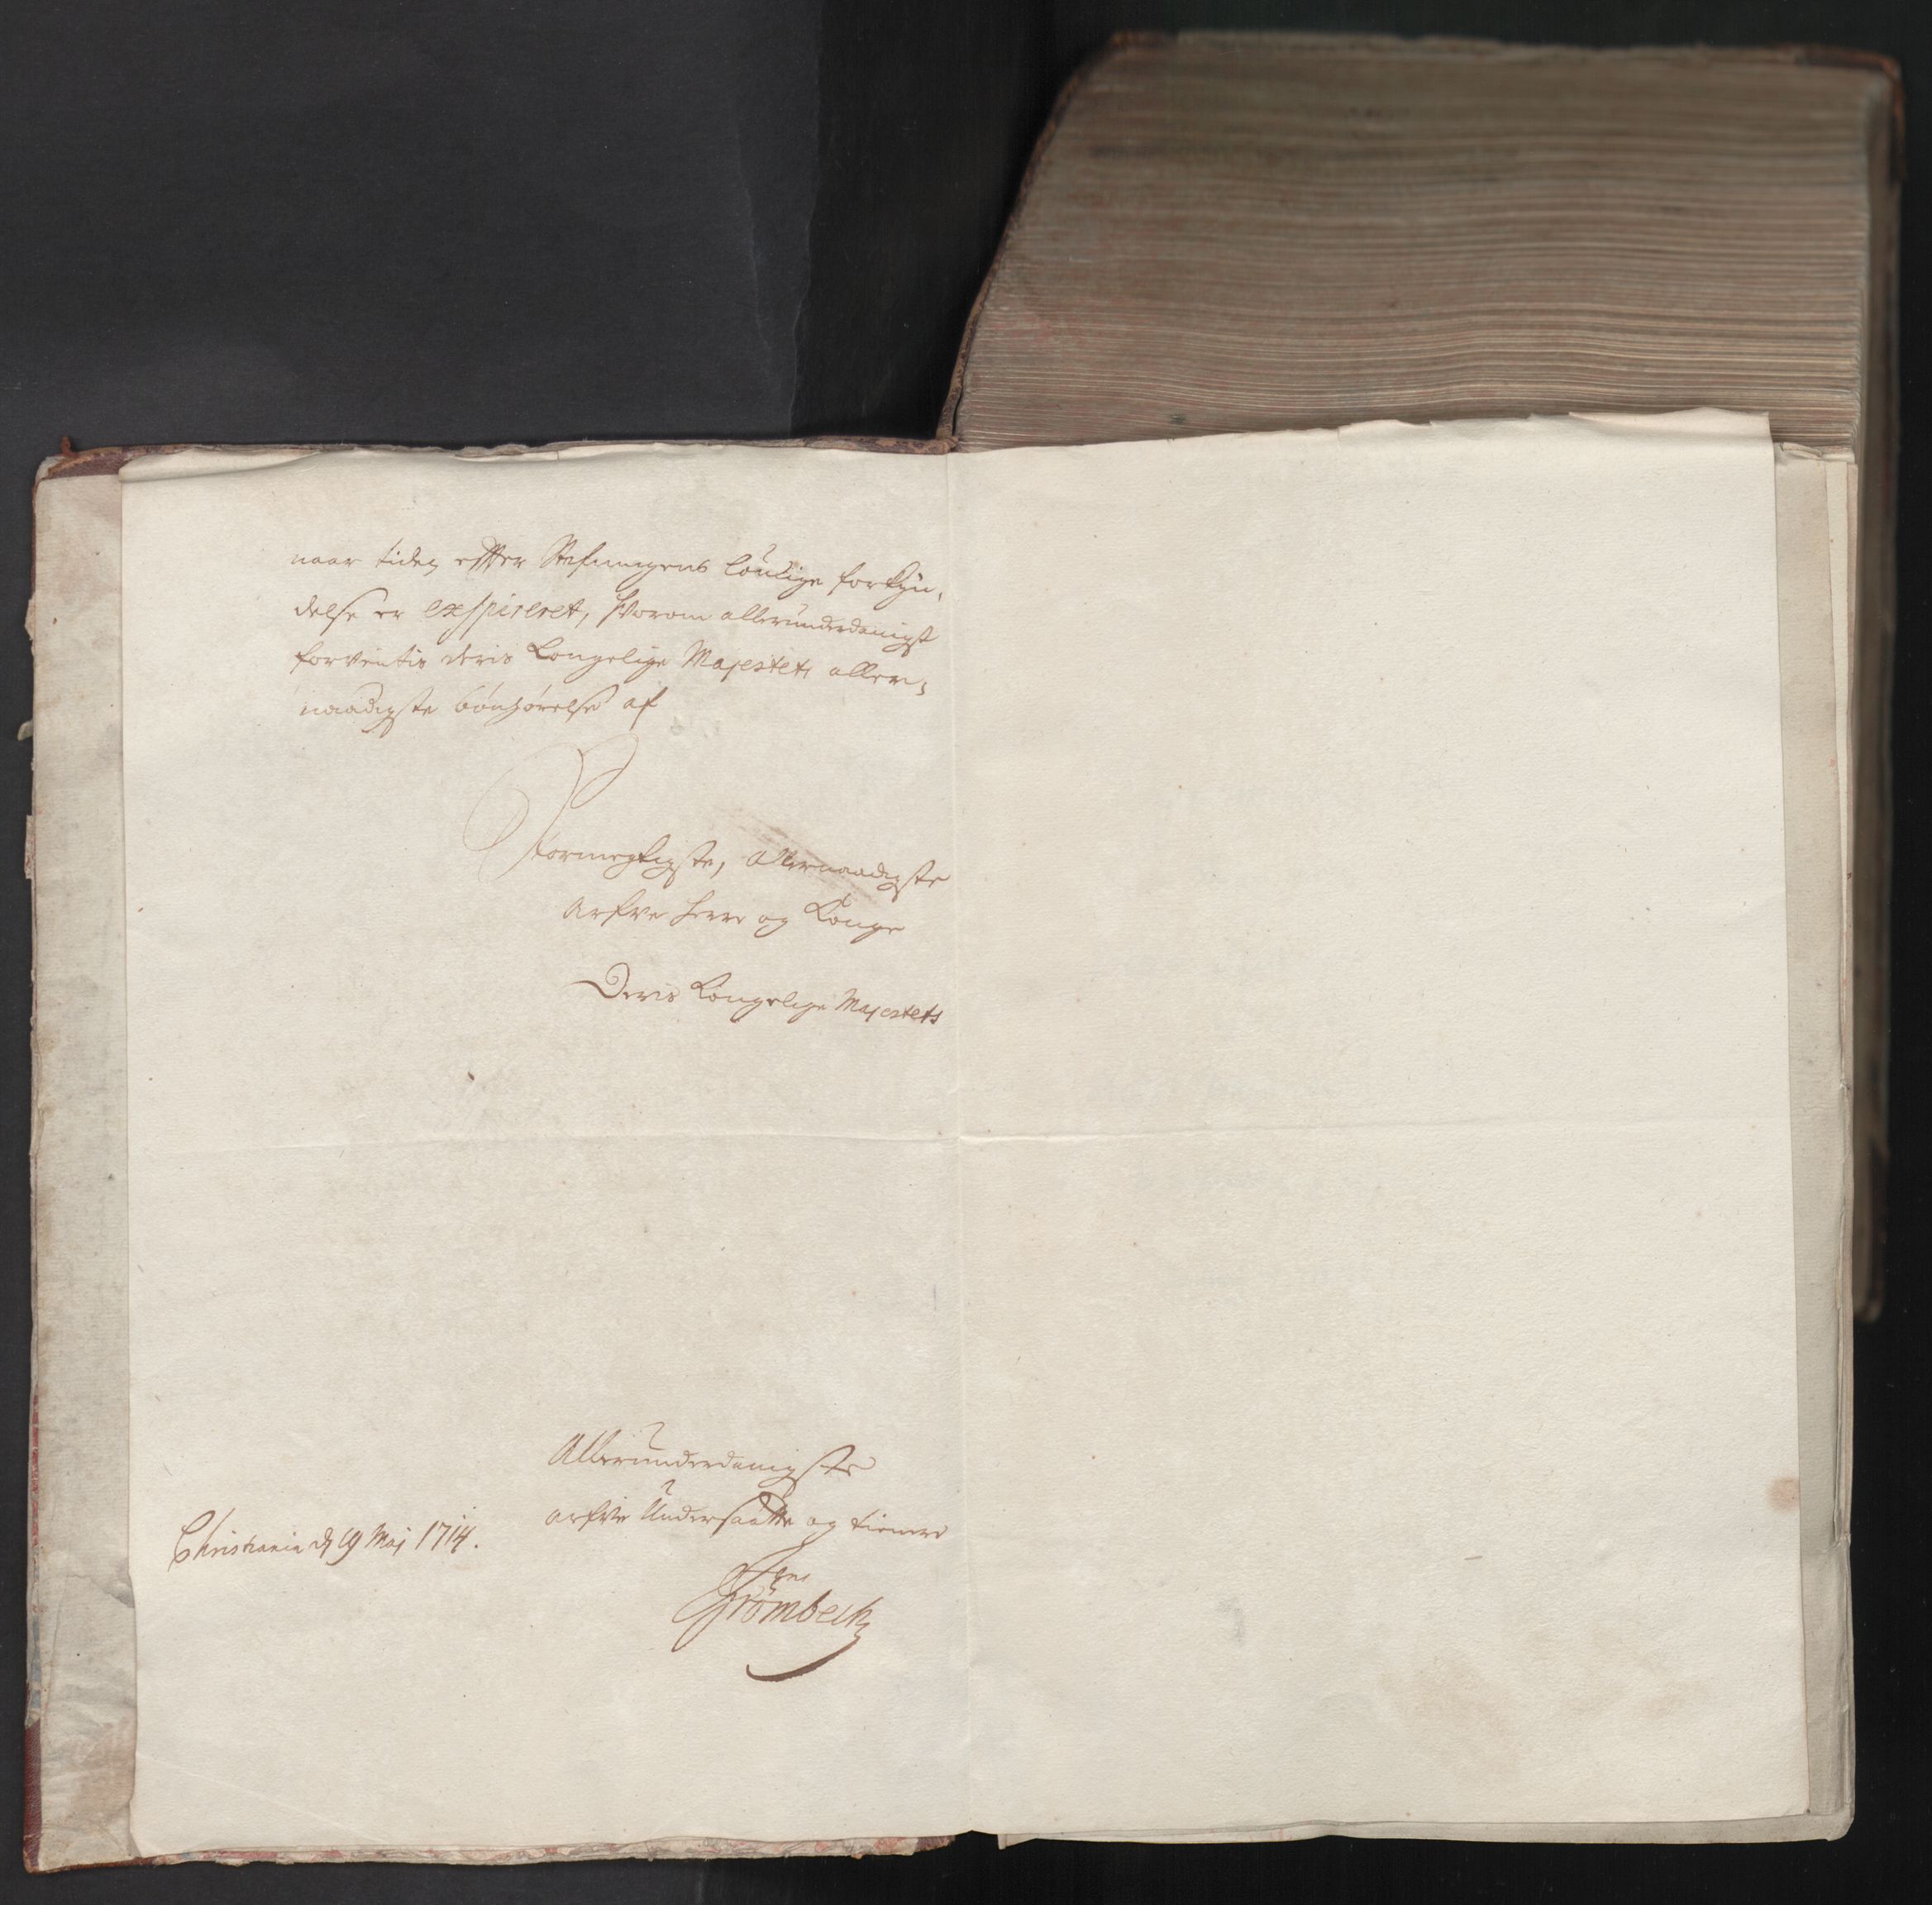 naar tiden effter Stefningens lovlige forkyn,
delse er expireret, hvorom allerunderdanigst
forventis deris Kongelige Majestets aller,
naadigste bønhørelse af
Stormegtigste, Allernaadigste
Arfve Herre og Konge
Deris Kongelige Majestets
Allerunderdanigste
arfve Undersaatte og tienere
Christiania d 19 Maj 1714.
Strømbeck